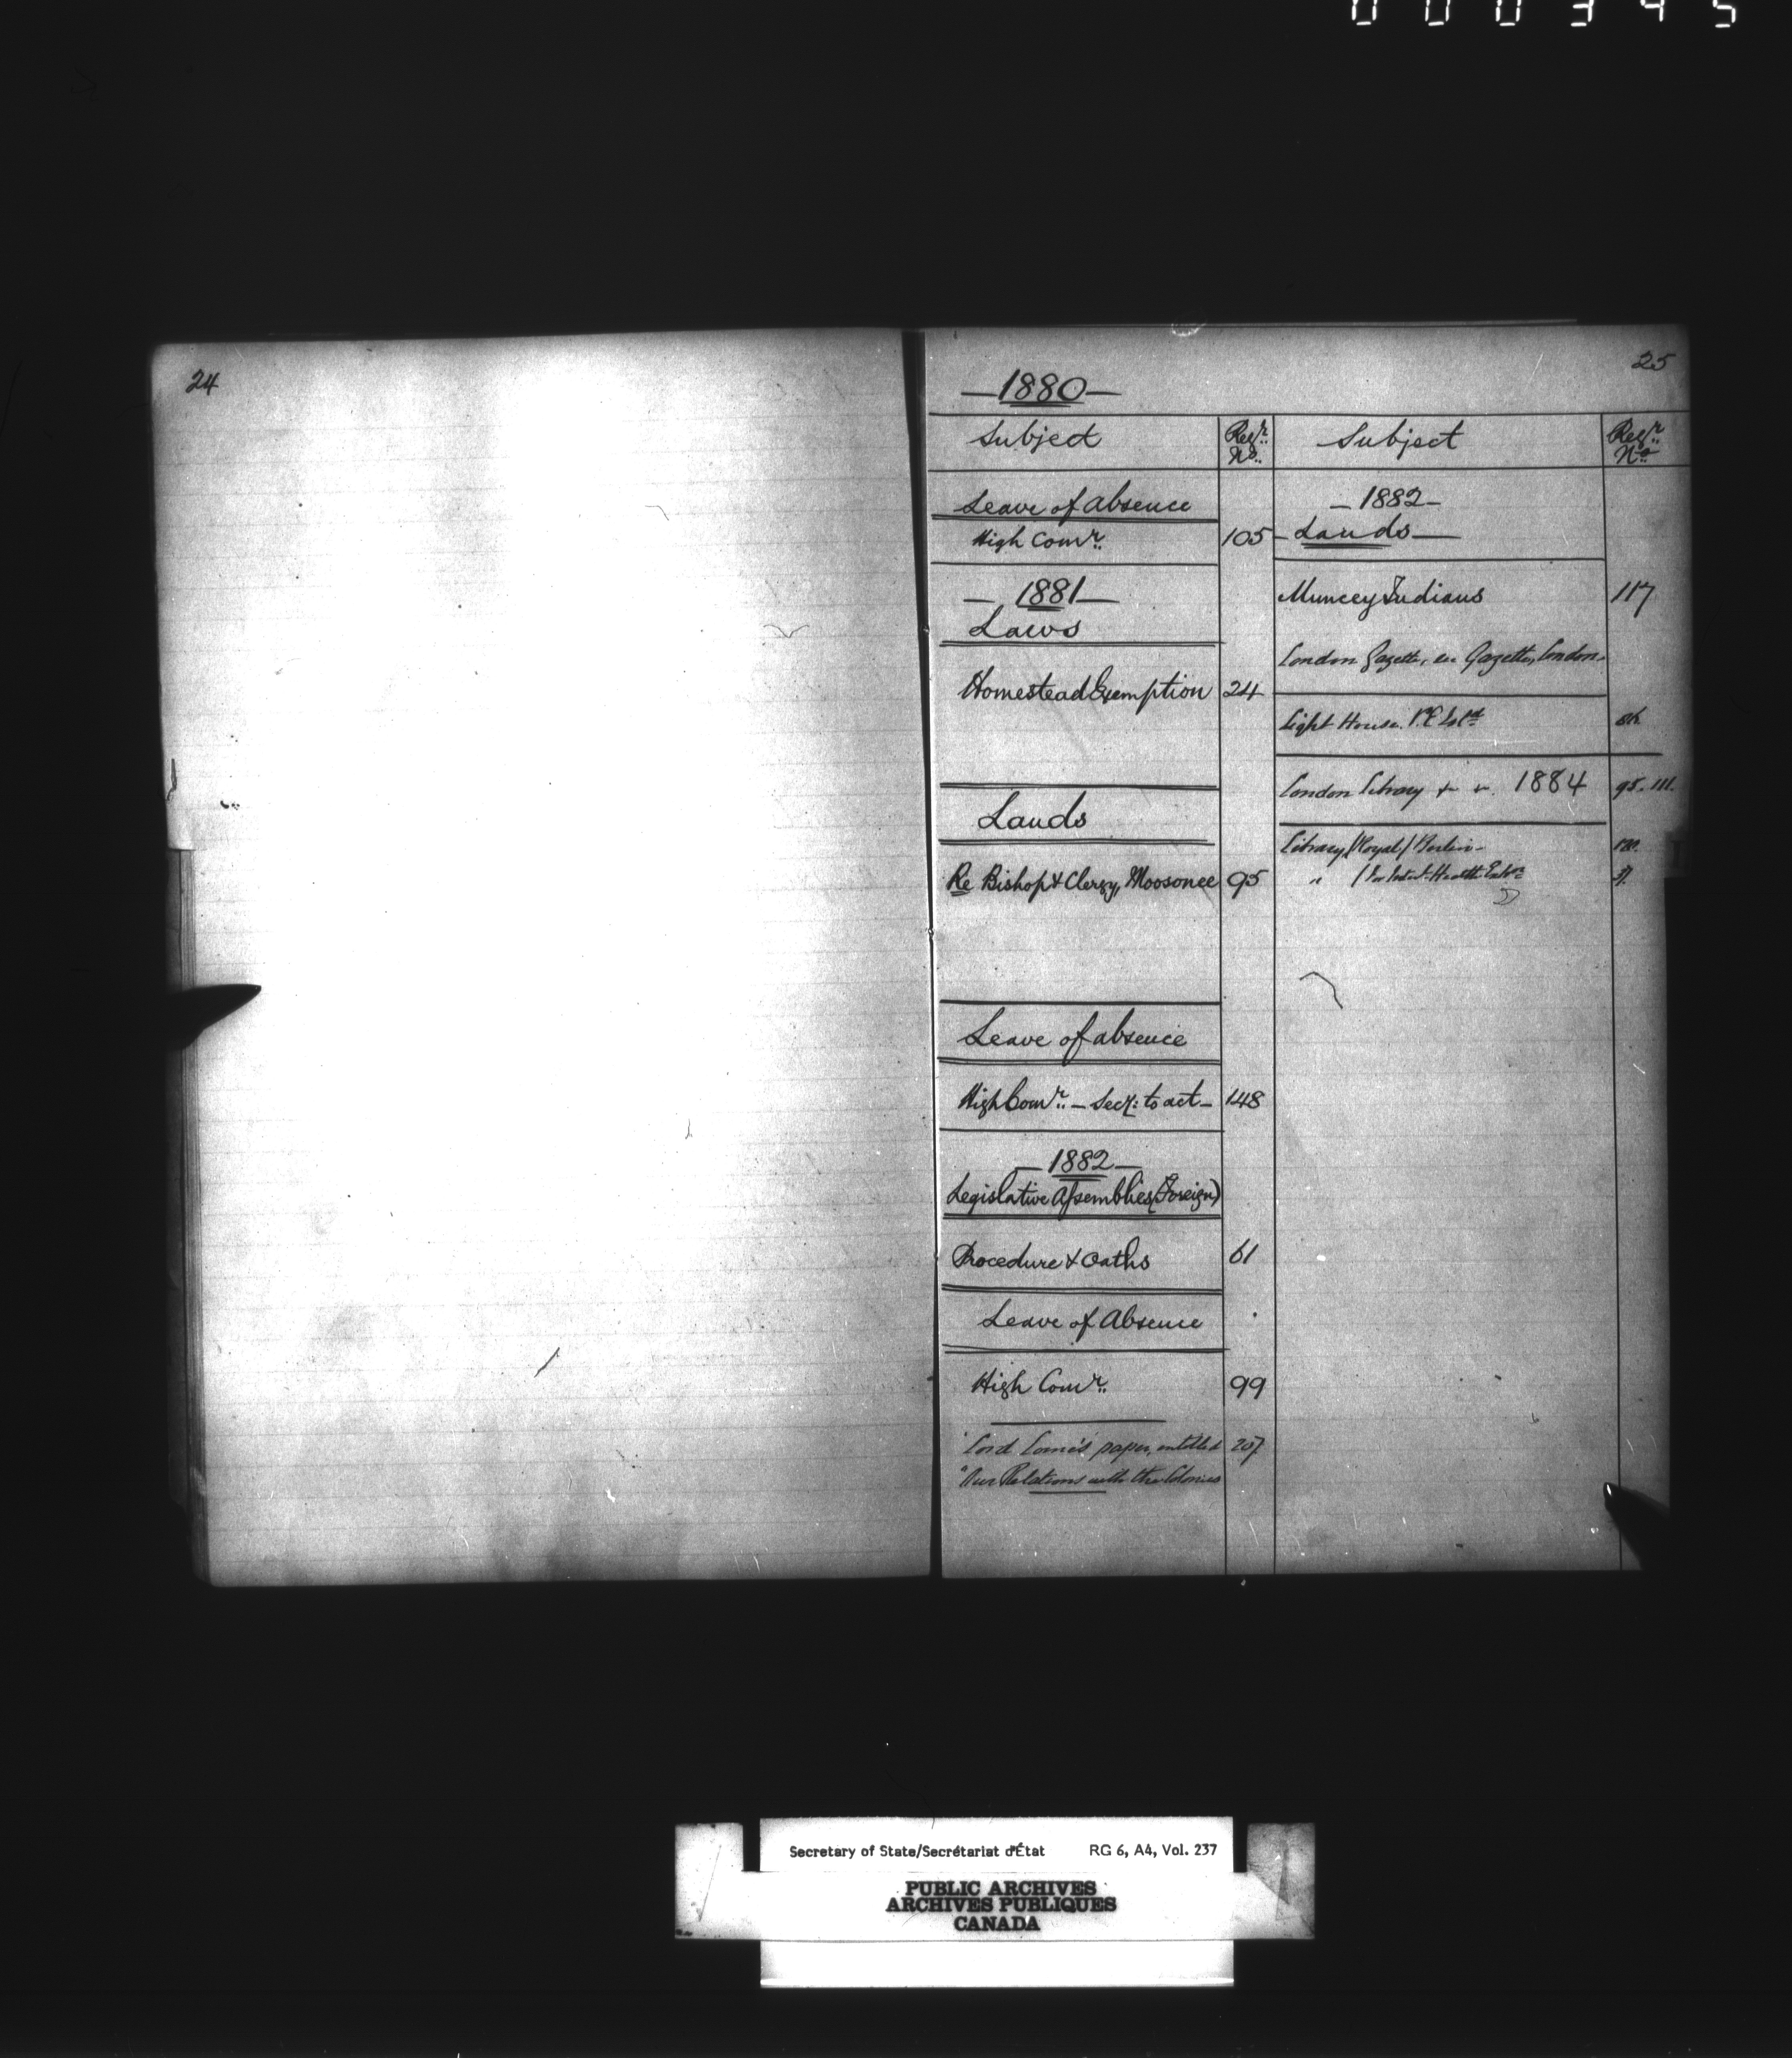 000345
24
25
— 1880 —
Subject
Regr. No.
Subject
Regr. No.
Leave of absence
High Comr. 105
— 1881 —
Laws
Homestead Exemption 24
Lands
Re Bishop & Clergy, Moosonee 95
Leave of absence
High Comr. – Secy: to act – 148
— 1882 —
Legislative Assemblies (Foreign)
Procedure & Oaths 61
Leave of Absence
High Comr. 99
Lord Lorne's paper, entitled 207
"Our Relations with the Colonies
– 1882 –
– Lands –
Muncey Indians 117
London Gazette, see Gazette, London.
Light House. P.E. Isld
London Library 1884 95. 111.
Library (Royal) Berlin –
" Health
Secretary of State/Secrétariat d'État RG 6, A4, Vol. 237
PUBLIC ARCHIVES
ARCHIVES PUBLIQUES
CANADA